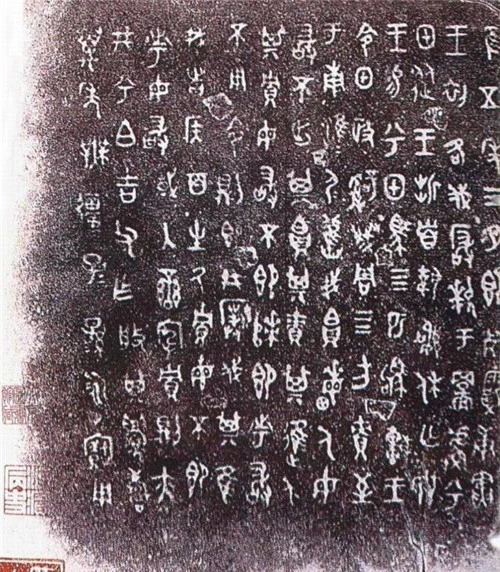 隹五年三月既死霸庚寅
王初各伐玁狁于䣙䖒兮
甲從王折首執訊休亡敃
王易兮甲馬四匹駒車王
令甲政𤔲成周四方責至
于南淮尸淮尸舊我帛畮人毋
敢不出其帛其責其進人
其貯毋敢不即次即市敢
不用令則即井撲伐其隹
我者侯百生厥貯毋不即
市毋敢或入蠻宄貯則亦
井兮白吉父乍般其眉壽
萬年無疆子子孫孫永寶用